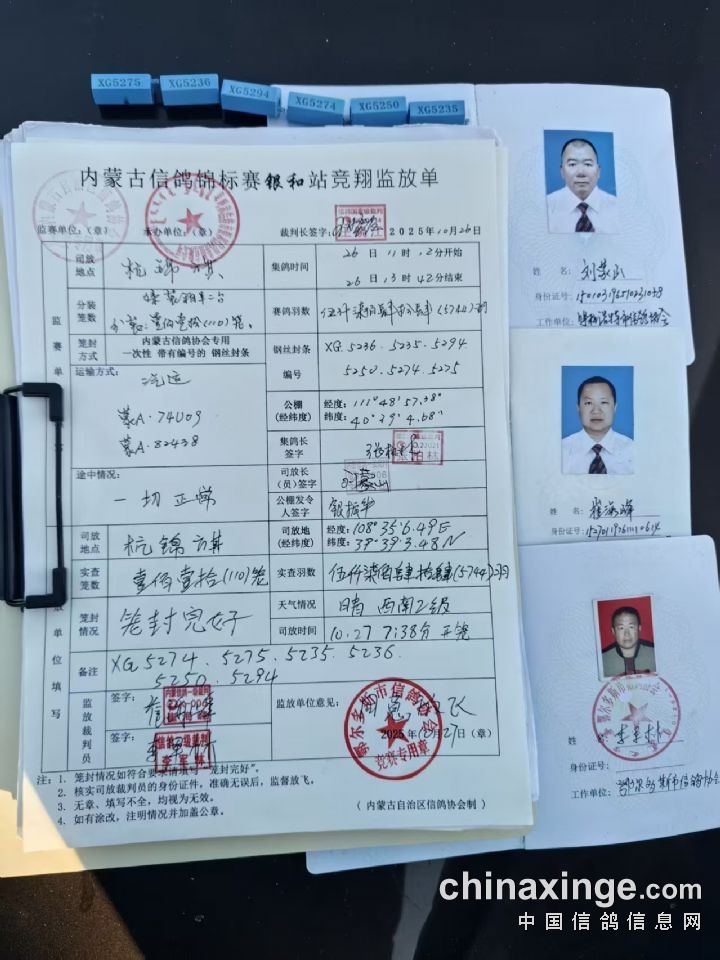 XG5275
XG5236
XG5294
XG5274
XG5250
XG5235
内蒙古信鸽锦标赛银和站竞翔监放单
监赛单位：（章） 承办单位：（章） 裁判长签字： 2025年10月26日
监赛单
司放地点 杭锦旗 集鸽时间 26日11时12分开始
26日13时42分结束
分装笼数 壹佰壹拾(110)笼 赛鸽羽数 (5744)羽
笼封方式 内蒙古信鸽协会专用 一次性 带有编号的 钢丝封条
钢丝封条编号 XG.5236.5235.5294.
5250.5274.5275
运输方式： 汽运
蒙A·74U09
蒙A·82438
公棚（经纬度） 经度：111°48′57.38″
纬度：40°29′4.68″
集鸽长签字
途中情况： 一切正常
司放长（员）签字
公棚发令人签字 银振华
单位填写
司放地点 杭锦旗 司放地（经纬度） 经度：108°35′6.49E
纬度：39°39′3.48″N
实查笼数 壹佰壹拾(110)笼 实查羽数 伍仟柒佰肆拾肆(5744)羽
笼封情况 笼封完好 天气情况 晴 西南2级
司放时间 10.27 7:38分 开笼
备注 XG.5274.5275.5235.5236.
5250.5294
监放裁判员 签字： 监放单位意见： 同意放飞
签字： 李军林 2025年10月27日（章）
鄂尔多斯市信鸽协会
竞赛专用章
注：1. 笼封情况如符合要求请填写“笼封完好”。
2. 核实司放裁判员的身份证件，准确无误后，监督放飞。
3. 无章、填写不全，均视为无效。
4. 如有涂改，注明情况并加盖公章。
（内蒙古自治区信鸽协会制）
姓 名：刘蒙山
身份证号：
工作单位：呼和浩特市信鸽协会
姓 名：
身份证号：
姓
身份证号：
工作单位：鄂尔多斯市信鸽协会
chinaxinge.com
中国信鸽信息网